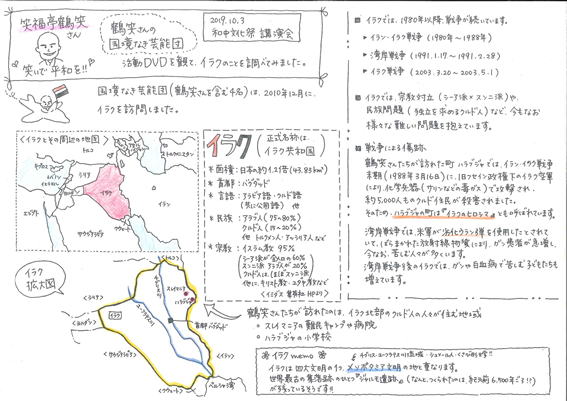 笑福亭鶴笑さん
笑いで平和を!!
鶴笑さんの
国境なき芸能団
2019.10.3
和中文化祭 講演会
活動DVDを観て、イラクのことを調べてみました。
国境なき芸能団(鶴笑さんを含む4名)は、2010年12月に、
イラクを訪問しました。
<イラクとその周辺の地図>
トルコ
シリア
イラク
イラン
エジプト
サウジアラビア
イラク
(正式名称は、イラク共和国)
* 面積:日本の約1.2倍(43.83万km²)
* 首都:バグダッド
* 言語:アラビア語・クルド語
(共に公用語) 他
* 民族:アラブ人(75~80%)
クルド人(15~20%)
他 トルクメン人・アッシリア人など
* 宗教:イスラム教 95%
シーア派が全人口の60%
スンニ派 アラブ人が20%
クルド人は、ほぼスンニ派
他に、キリスト教・ユダヤ教など
イラク
拡大図
<トルコ>
<シリア>
<ヨルダン>
<サウジアラビア>
<クウェート>
<イラン>
イラク
ユーフラテス川
スレイマニア
ハラブジャ
首都バグダッド
ペルシャ湾
鶴笑さんたちが訪れたのは、イラク北部のクルド人の人々が住む地域
○ スレイマニアの難民キャンプや病院
○ ハラブジャの小学校
イラクmemo
イラクは四大文明の1つ、メソポタミア文明の地と重なります。
世界最古の集落跡のひとつ“ジャルモ遺跡”(なんと、つくられたのは、紀元前6,500年ごろ!!)
が残っているそうです!!
■ イラクでは、1980年以降、戦争が続いています。
▶ イラン・イラク戦争 (1980年~1988年)
▶ 湾岸戦争 (1991.1.17~1991.2.28)
▶ イラク戦争 (2003.3.20~2003.5.1)
■ イラクでは、宗教対立(シーア派×スンニ派)や、
民族問題(独立を求めるクルド人)など、今もなお
様々な難しい問題を抱えています。
■ 戦争による傷跡
鶴笑さんたちが訪れた町 ハラブジャでは、イラン・イラク戦争
末期(1988年3月16日)に、旧フセイン政権下のイラク空軍
により、化学兵器(サリンなどの毒ガス)で攻撃され、
約5,000人ものクルド住民が殺害されました。
そのため、ハラブジャの町は“イラクのヒロシマ”とも呼ばれています。
湾岸戦争では、米軍が劣化ウラン弾を使用したとされて
いて、ばらまかれた放射線物質により、ガン患者が急増し、
今なお、苦しむ人々が多くいます。
湾岸戦争後のイラクでは、ガンや白血病で苦しむ子どもたちも
増えています。